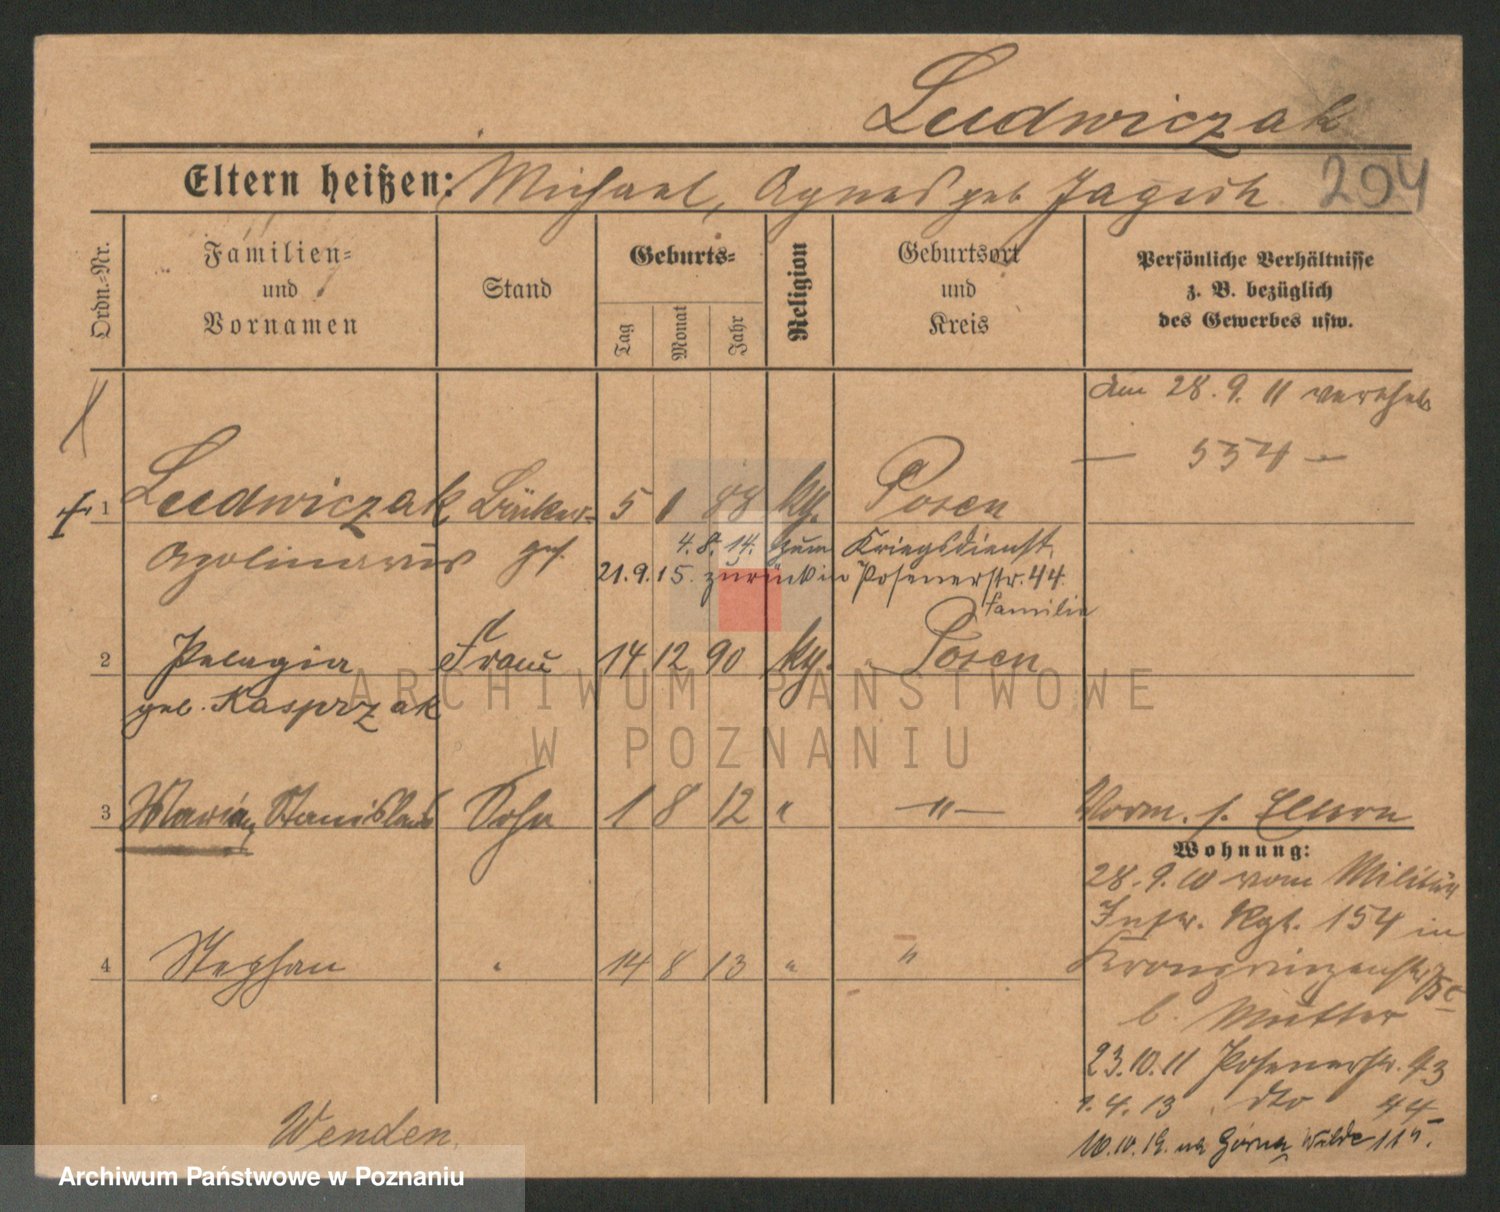 Ludwiczak
Eltern heißen: Michael, Agnes geb Jagisch 294
Ordn.=Nr.
Familien=
und
Vornamen
Stand
Geburts=
Tag
Monat
Jahr
Religion
Geburtsort
und
Kreis
Persönliche Verhältnisse
z. B. bezüglich
des Gewerbes usw.
Am 28.9.11 verehel.
— 554 —
1 Ludwiczak Bäcker= 5 1 88 kg. Posen
Apolinarus ges.
4.8.14. zum Kriegsdienst
21.9.15. zurück in Posenerstr. 44.
Familie
2 Pelagia Frau 14 12 90 kg. Posen
geb. Kasprzak
3 Marian Stanislaus Sohn 1 8 12 " —"— Vorm. s. Eltern
Wohnung:
28.9.10 vom Militär
Inftr. Rgt. 154 in
4 Stephan " 14 8 13 " " Kronprinzenstr.
b. Mutter
23.10.11 Posenerstr. 43
1.4.13 dto 44
10.10.19. na Górna Wilde 115.
Wenden.
ARCHIWUM PAŃSTWOWE
W POZNANIU
Archiwum Państwowe w Poznaniu